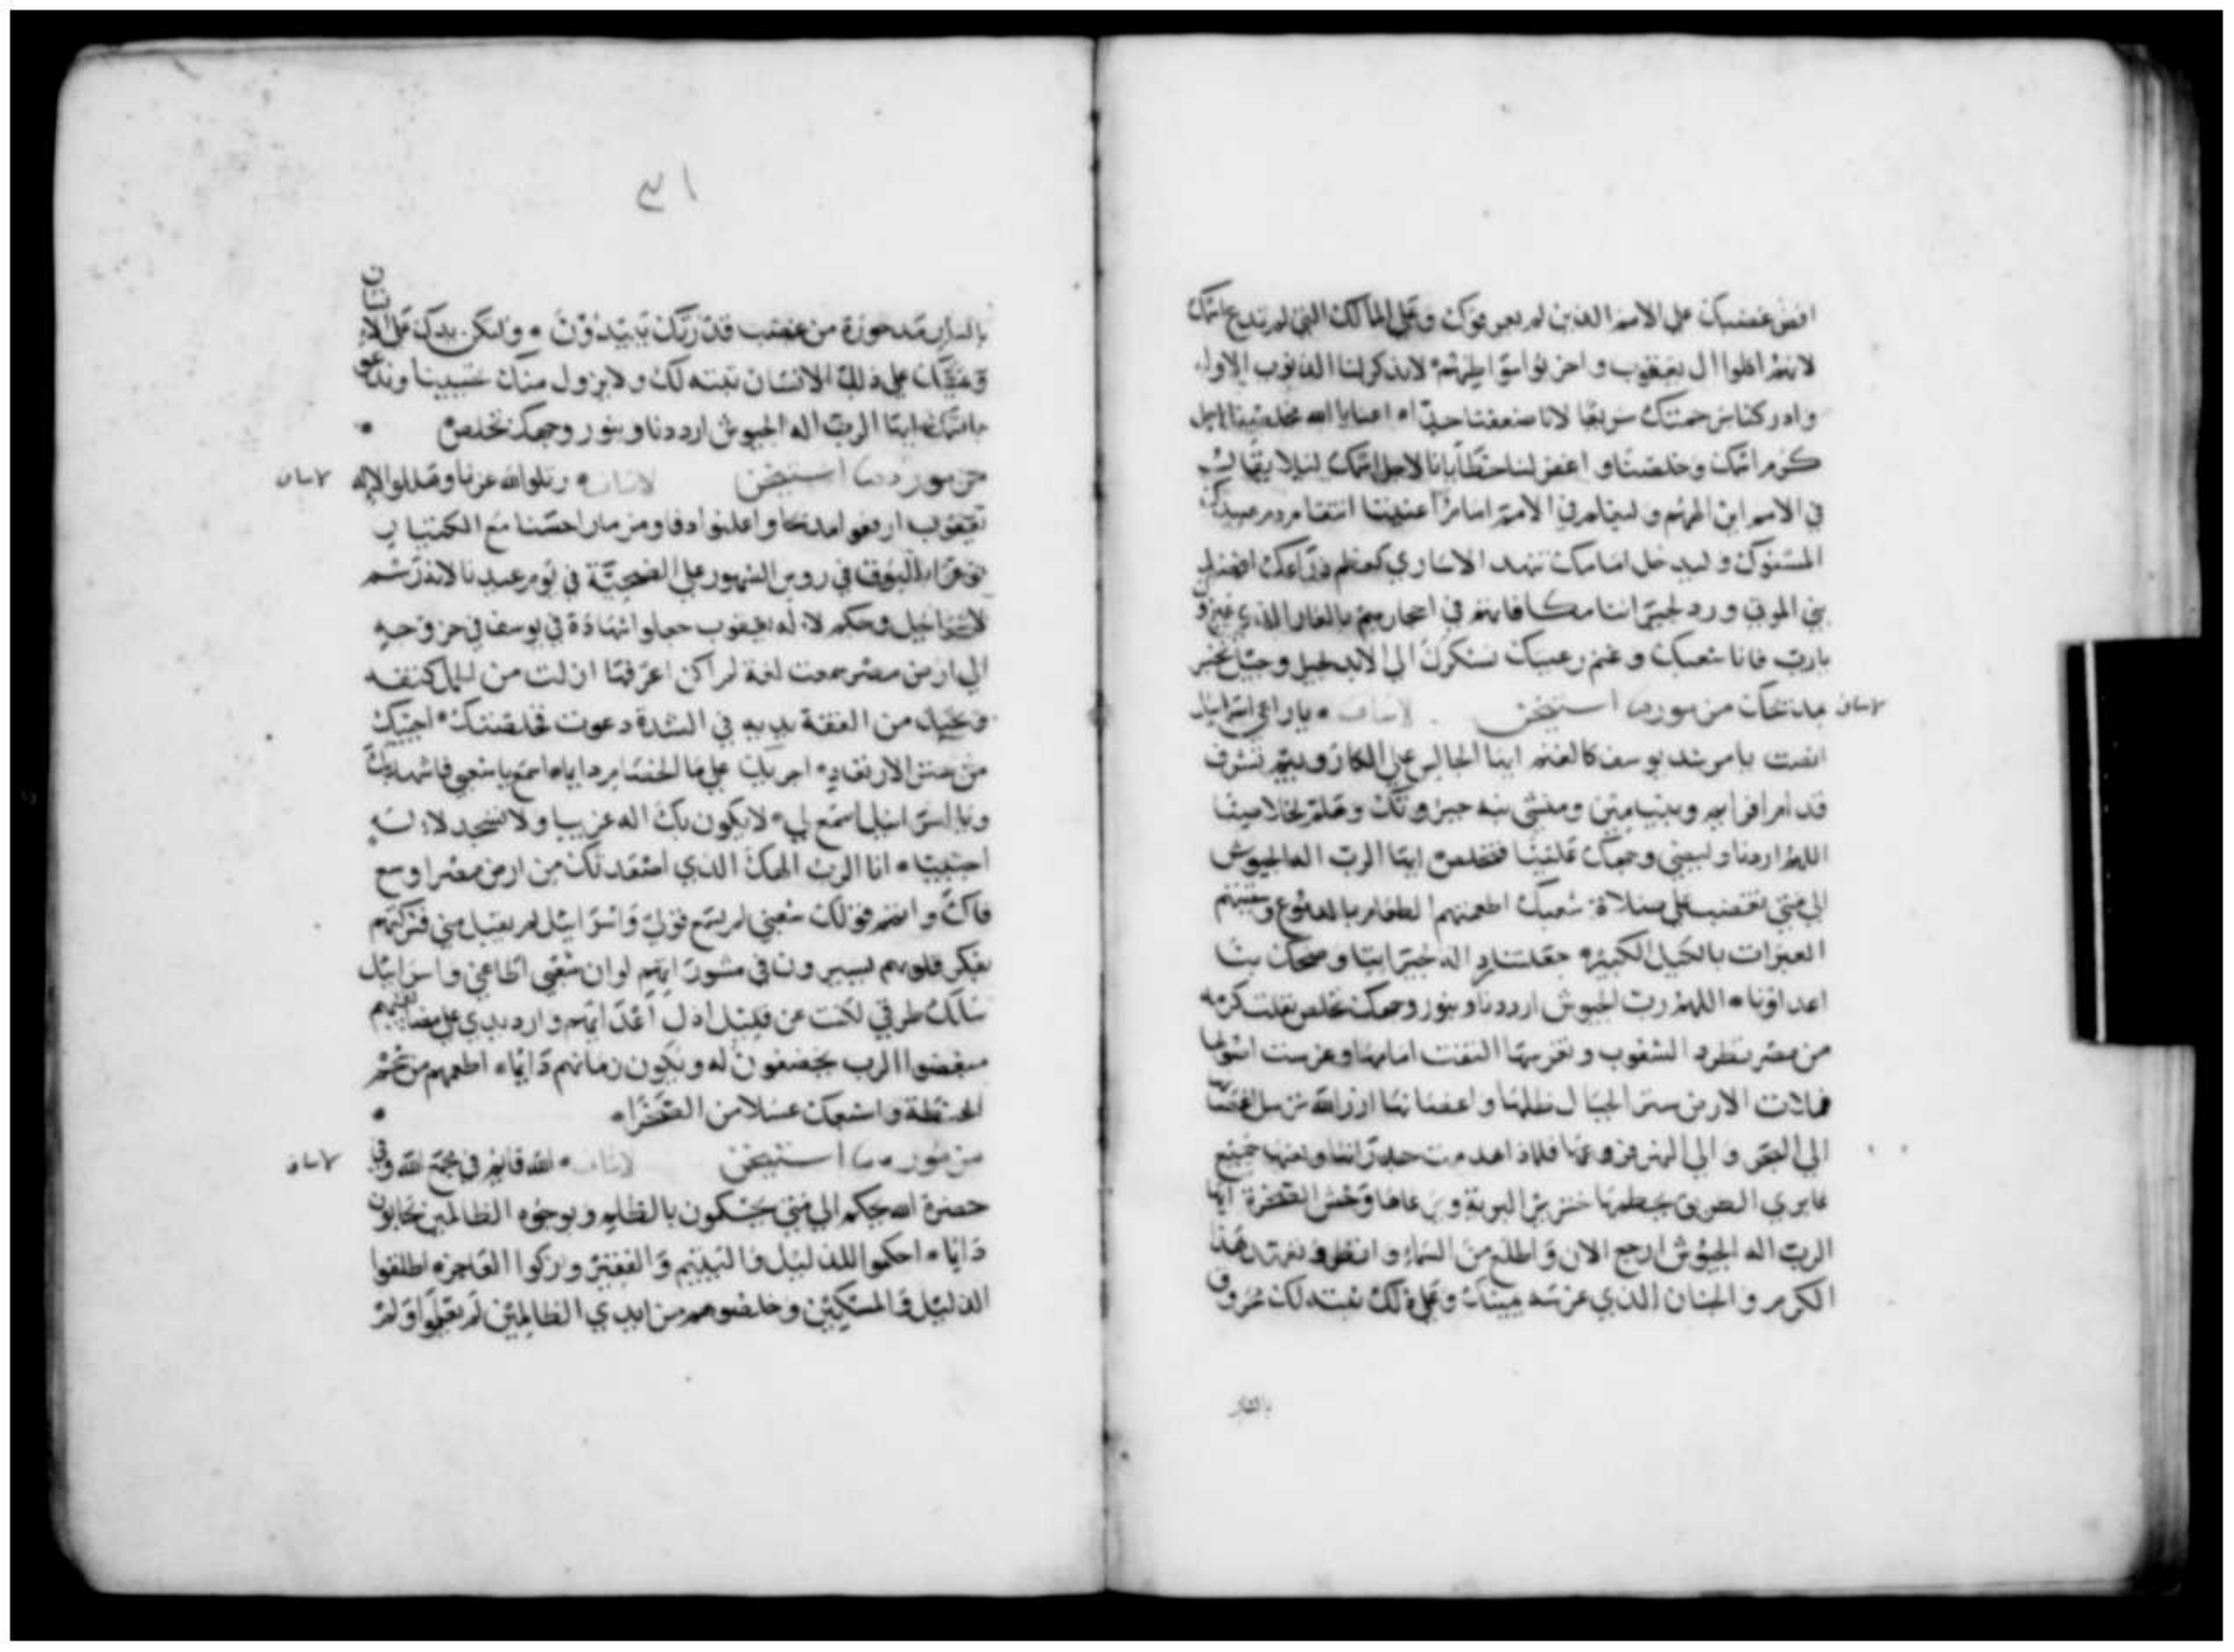 افض غضبك على الامم الذين لم يعرفوك وعلى الممالك التي لم تدع اسمك
لانهم اكلوا ال يعقوب واخربوا مواطنهم لا تذكر لنا الذنوب الاولى
وادركنا من رحمتك سريعًا لانا ضعفنا جدًا اعنا يا الله مخلصنا لاجل
كرم اسمك وخلصنا واغفر لنا خطايانا لاجل اسمك ليلا يقال
في الامم اين الههم وليتم في الامم امام اعيننا انتقام دم عبيدك
المسفوك وليدخل امامك تنهد الاسارى كعظم ذراعك افضل
بني الموتى ورد لجيراننا مكافاتهم في احجارهم بالعار الذي عيروك
يارب فانا شعبك وغنم رعيتك نشكرك الى الابد جيل وجيل نخبر
مدحتك مزمور استيخن لاساف ياراعي اسرائيل
انصت يا مرشد يوسف كالغنم ايها الجالس على الكاروبيم تشرف
قدام افرايم وبنيامين ومنشى نبه جبروتك وهلم لخلاصنا
اللهم ارددنا وليضي وجهك علينا فنخلص ايها الرب اله الجيوش
الى متى تغضب على صلاة شعبك اطعمتهم الطعام بالدموع وسقيتهم
العبرات بالكيل الكبيره جعلتنا الى جيراننا وضحك بنا
اعداؤنا اللهم رب الجيوش ارددنا وبنور وجهك نخلص نقلت كرمه
من مصر بطرد الشعوب وتغرسها التفتت امامها وغرست اصولها
فملات الارض ستر الجبال ظلها واغصانها ارز الله ترسل اغصانها
الى البحر والى النهر فروعها فلماذا هدمت جدرانها وجنيها جميع
عابري الطريق يحطمها خنزير البرية ويرعاها وحش الصحرة ايها
الرب اله الجيوش ارجع الان واطلع من السماء وانظر وتعهد هذا
الكرم والجنان الذي غرسته يمينك وعلى ذلك ثبته لك محروق
بالنار
٣١
بالنار مدحورة من غضب قدرتك تبيدون ولتكن يدك على الانسان
وعينك على ذلك الانسان ثبته لك ولا يزول منك تحيينا وندعو
باسمك ايها الرب اله الجيوش ارددنا وبنور وجهك نخلص
مزمور استيخن لاساف رتلوا لله عزنا وهللوا لاله
يعقوب ارفعوا مدحا واعلنوا دفا ومزمار احسنا مع الكنتا
بوق في روس الشهور على الضحية في يوم عيدنا لانه رسم
لاسرائيل وحكم لاله يعقوب جعلوا شهادة في يوسف في خروجه
الى ارض مصر سمعت لغة لم اكن اعرفها ازلت من ليل كتفه
من القفة يديه في الشدة دعوت فخلصتك اجيبك
من ستر الارتعاد اجربك على ما الخصام دايما اسمع يا شعبي فاشهد بك
ويا اسرائيل اسمع لي لا يكون بك اله غريبا ولا تسجد لاله
اجنبيا انا الرب الهك الذي اصعدتك من ارض مصر اوسع
فاك وانعم قولك شعبي لم يسمع قولي واسرائيل لم يقبل مني فتركتهم
بفكر قلوبهم يسيرون في مشوراتهم لو ان شعبي اطاعني واسرائيل
سالك طرقي لكنت عن قليل اذل اعداءهم وارد يدي على مضايقيهم
مبغضوا الرب يخضعون له ويكون زمانهم دايما اطعمهم من شحم
الحنطة واشبعك عسلا من الصخر
مزمور استيخن لاساف الله قايم في مجمع الله وفي
حضرة الله يحكم الى متى تحكمون بالظلم وبوجوه الظالمين تحابون
دايما احكموا للذليل واليتيم والفقير وزكوا العاجزه اطلقوا
الذليل والمسكين وخلصوهم من ايدي الظالمين لم يعقلوا ولم